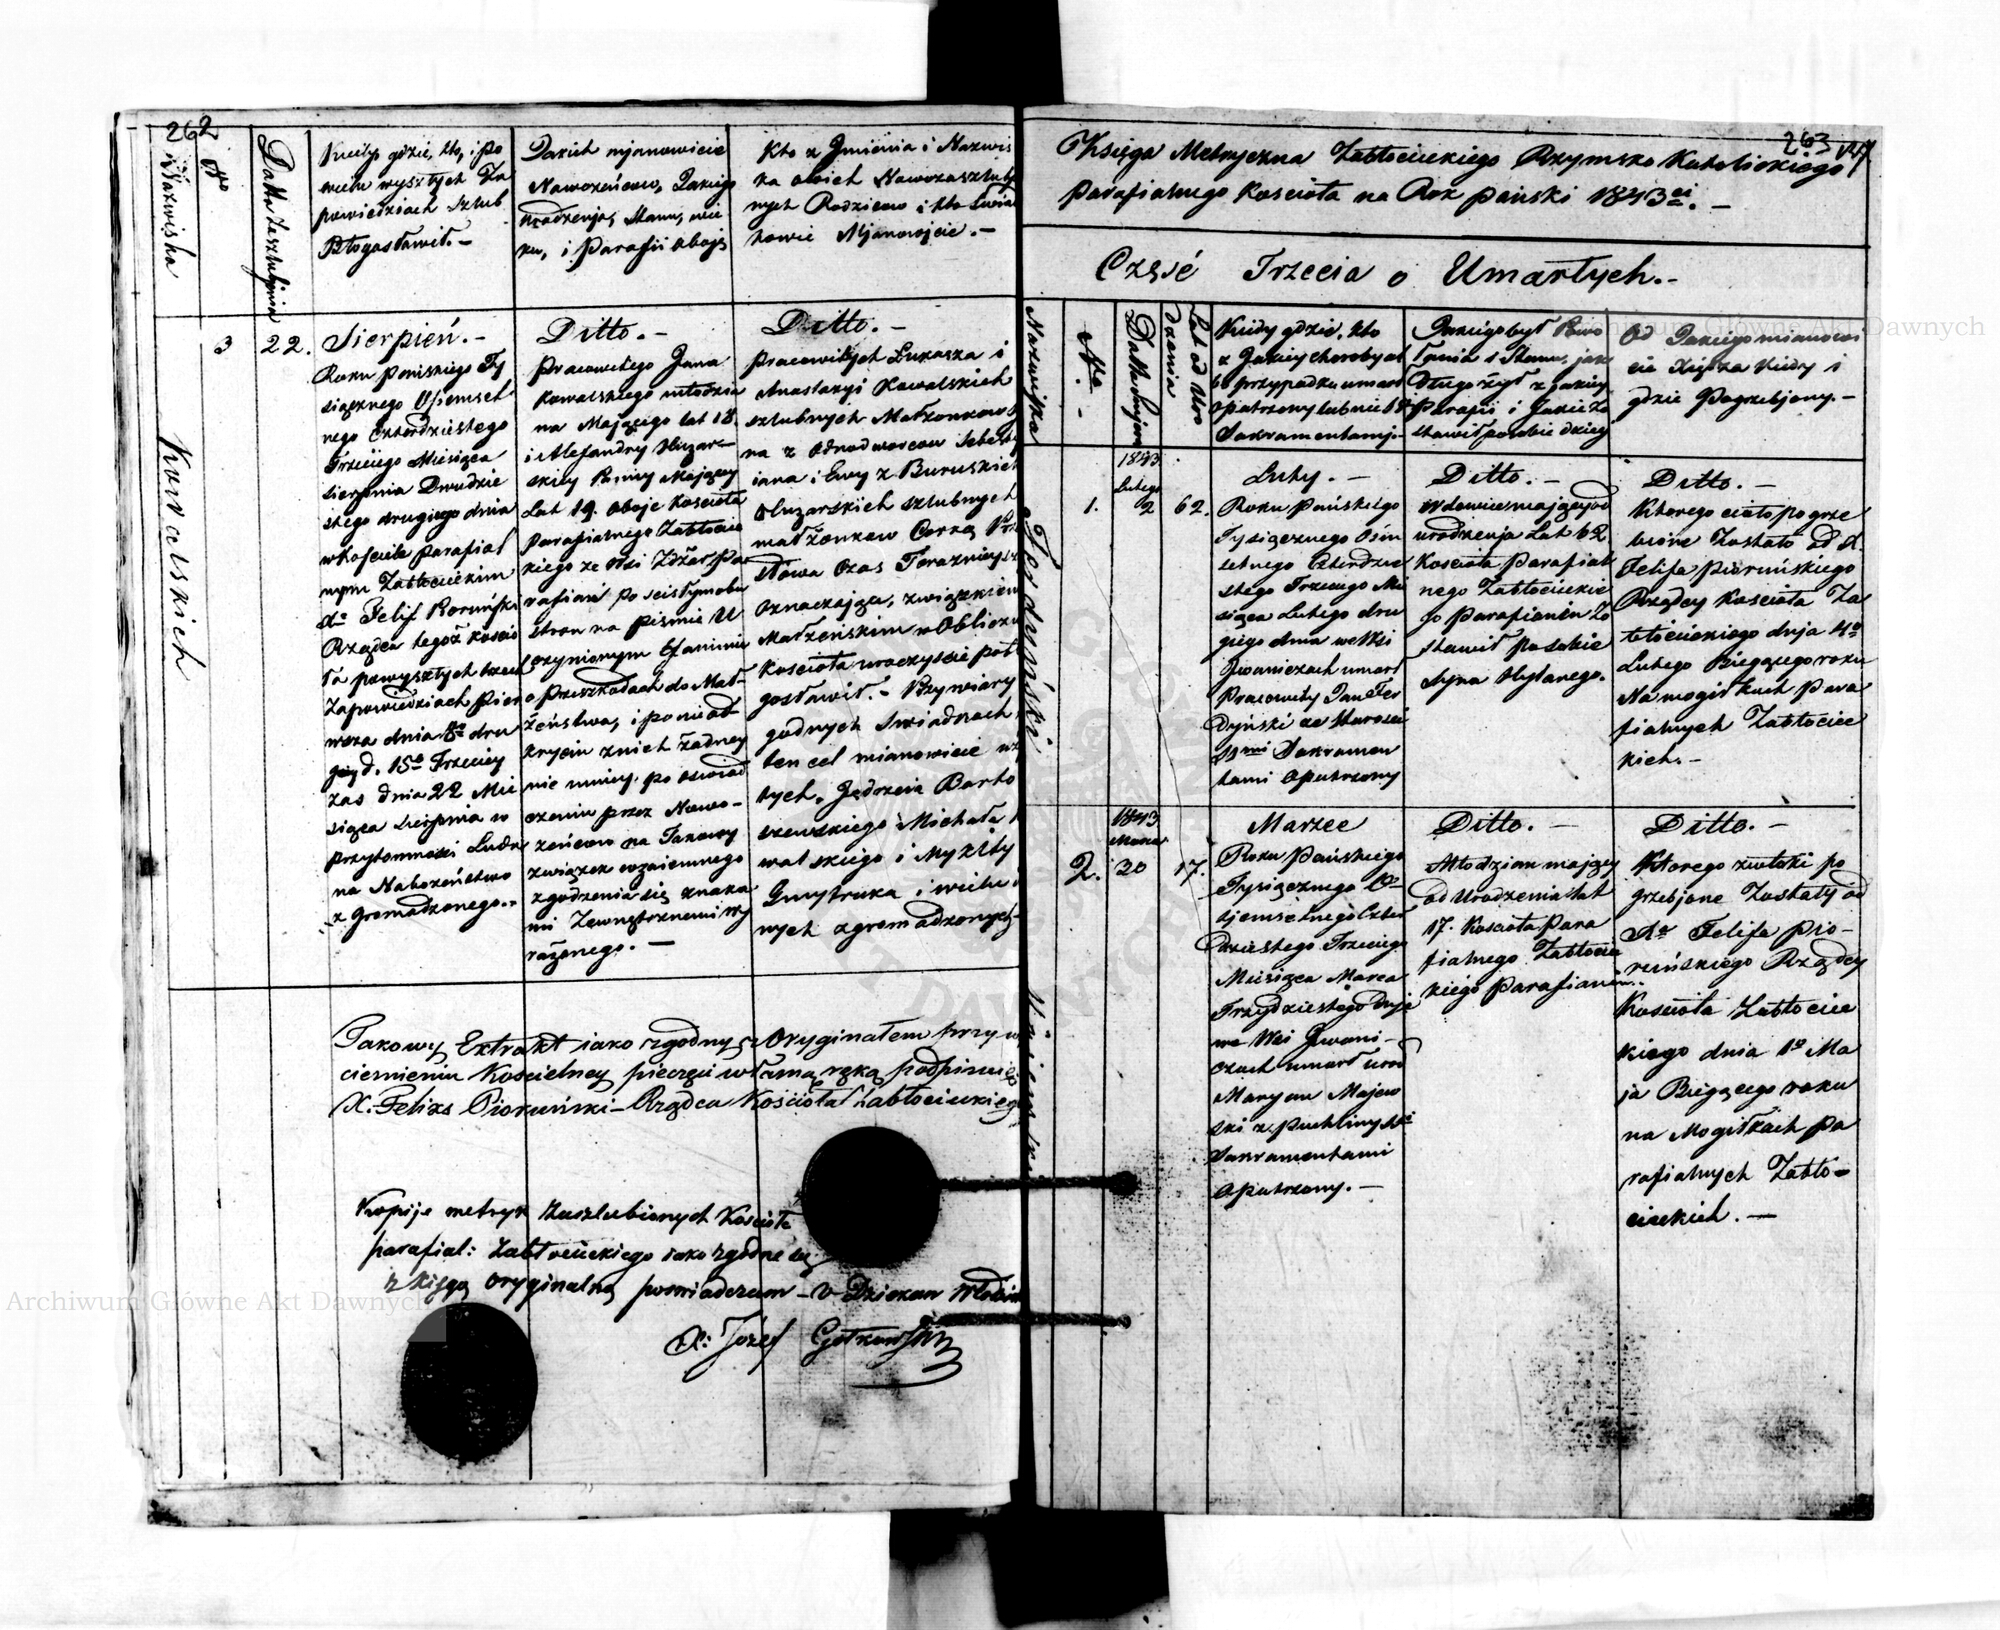 262
Nazwiska
Nro
Datta Zaszlubjenia
Kiedy gdzie, kto, i po
wielu wyszłych Za
powiedziach Szlub
Błogosławił. –
Jakich mjanowicie
Nowożeńcow, Jakiego
urodzenja, Stanu, wie
ku, i Parafii oboje
Kto z Jmienia i Nazwis
ka owich Nowozaszlubjo
nych Rodzicow i kto Swiad
kowie Mjanowicie. –
Kowalskich
3
22.
Sierpień. –
Roku Pańskiego Ty
siącznego Osiemset
nego Czterdziestego
Trzeciego Miesiąca
Sierpnia Dwudzie
stego drugiego dnia
w Kościele Parafial
nym Zabłocieckim
X. Felix Pioruński
Rządca tegoż Kościo
ła po wyszłych trzech
Zapowiedziach Pier
wsza dnia 8o dru
giey d. 15o Trzeciey
zas dnia 22 Mie
siąca Sierpnia w
przytomności Ludu
na Nabożeństwo
zgromadzonego. –
Ditto. –
Pracowitego Jana
Kowalskiego młodzia
na Mającego lat 18.
i Alexandry Huzar–
skiey Panny Mającey
Lat 19. oboje Kościoła
Parafialnego Zabłocie
kiego ze Wsi Zdżar Pa
rafian po scisłym obu
stron na pismie U
czynionym Examinie
o przeszkodach do Mał–
żeństwa, i po nieod–
kryciu z nich żadney
nie mniey po oswiad
czeniu przez Nowo–
żeńcow na Takowy
związek wzaiemnego
zgodzenia się znaka
mi Zewnętrznemi wy
rażonego. –
Ditto. –
Pracowitych Łukasza i
Anastazyi Kowalskich
szlubnych Małżonkow Sy
na z Odnodworcow Sebasty
iana i Ewy z Buruskich
Huzarskich szlubnych
małżonkow Corką
Słowa Czas Teraznieyszy
Oznaczające, związkiem
Małżeńskim w Obliczu
Kościoła uroczyscie pobło
gosławił. – Przy wiary
godnych Swiadkach
ten cel mianowicie
tych. Jędrzeia Barto
szewskiego Michała
walskiego i Mykity
Gmytruka i wielu i
nych zgromadzonych –
Takowy Extrakt iako zgodny z Oryginałem przy wy
cisnieniu Kościelney pieczęci własną ręką podpisuię
X. Felixs Pioruński – Rządca Kościoła Zabłocieckiego
Kopije metryk Zaszlubionych Kościoła
parafial: Zabłocieckiego iako zgodne są
z księgą oryginalną poswiadczam – V Dziekan Włodzim
X: Józef
263
Księga Metryczna Zabłocieckiego Rzymsko Katolickiego
Parafialnego Kościoła na Rok Pański 1843ci. –
Część Trzecia o Umarłych. –
Nazwiska
Nro
Datta Umjera
Lat od Uro
dzenia
Kiedy gdzie, kto
z Jakiey choroby al
bo przypadku umarł
opatrzony lub nie SS
Sakramentami. –
Jakiego był Powo
łania i Stanu, jak
Długo żył z jakiey
Parafii i Jakie zo
stawił po sobie dzieci
Od Jakiego mianowi
cie Xiędza Kiedy i
gdzie Pogrzebjony. –
Ferdyński
1.
1843
Lutego
2
62.
Luty. –
Roku Pańskiego
Tysiącznego Osm
setnego Czterdzie
stego Trzeciego Mie
siąca Lutego dru
giego dnia we Wsi
Jwaniczach umarł
Pracowity Jan Fer
dyński ze Starości
SSmi Sakramen
tami Opatrzony
Ditto. –
Wdowiec mający od
urodzenja Lat 62
Kościoła Parafial
nego Zabłocieckie
go Parafianin Zo
stawił po sobie
Syna
Ditto. –
Ktorego ciało pogrze
bione Zostało od X.
Felixa Pioruńskiego
Rządcy Kościoła Za
błocieckiego dnja 4o
Lutego Bieżącego roku
Na mogiłkach Para
fialnych Zabłociec
kich. –
2.
1843
Marca
30
17.
Marzec
Roku Pańskiego
Tysiącznego O–
sjemsetnego Czter
dziestego Trzeciego
Miesiąca Marca
Trzydziestego Dnja
we Wsi Jwani–
czach umarł urod
Maryan Majew
ski z puchliny SSmi
Sakramentami
Opatrzony. –
Ditto. –
Młodzian mający
od Urodzenia lat
17. Kościoła Para
fialnego Zabłociec
kiego Parafianin. –
Ditto. –
Ktorego zwłoki po
grzebjone Zostały od
X. Felixa Pio–
ruńskiego Rządcy
Kościoła Zabłociec
kiego dnia 1o Ma
ja Bieżącego roku
na Mogiłkach Pa
rafialnych Zabło–
cieckich. –
Archiwum Główne Akt Dawnych
Archiwum Główne Akt Dawnych